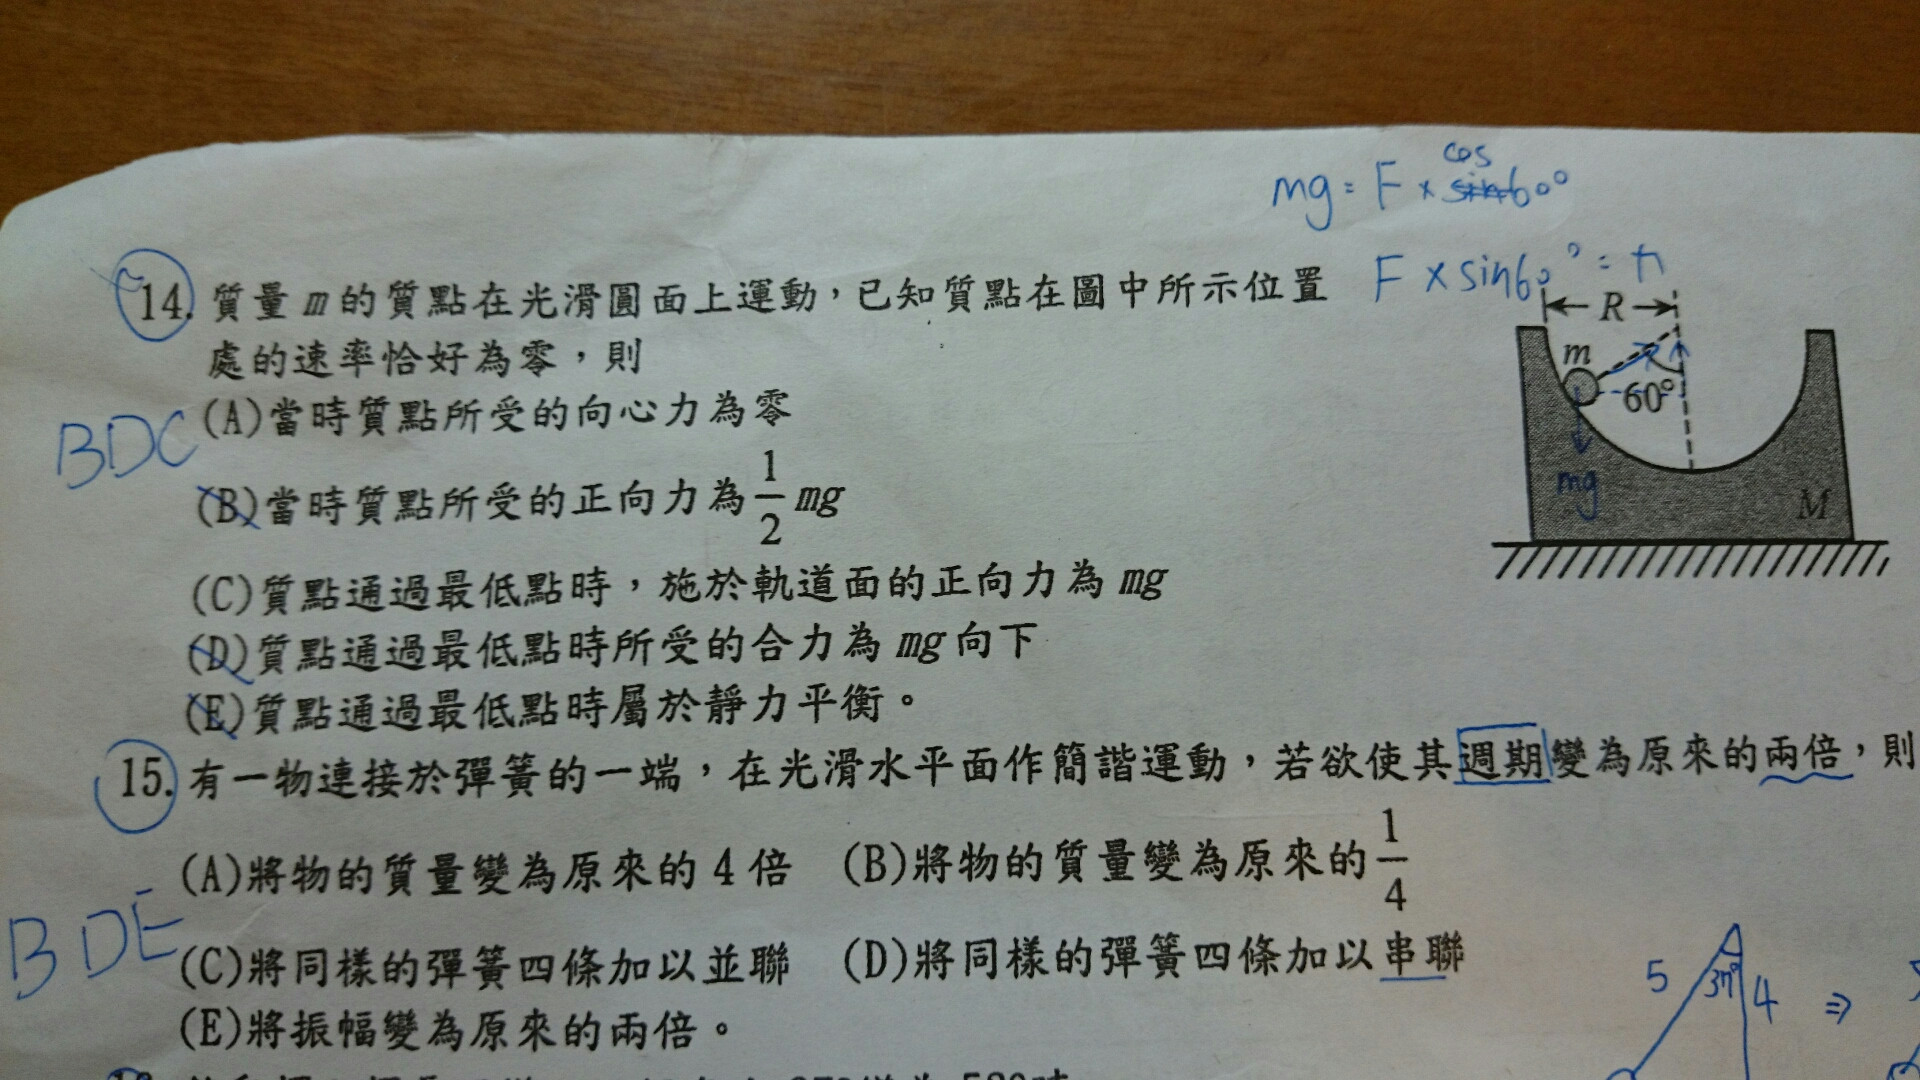 mg = F × cos60°
F × sin60° =
14. 質量 m 的質點在光滑圓面上運動，已知質點在圖中所示位置
處的速率恰好為零，則
R
m
60°
mg
M
BDC
(A)當時質點所受的向心力為零
(B)當時質點所受的正向力為 1/2 mg
(C)質點通過最低點時，施於軌道面的正向力為 mg
(D)質點通過最低點時所受的合力為 mg 向下
(E)質點通過最低點時屬於靜力平衡。
15. 有一物連接於彈簧的一端，在光滑水平面作簡諧運動，若欲使其週期變為原來的兩倍，則
BDE
(A)將物的質量變為原來的 4 倍 (B)將物的質量變為原來的 1/4
(C)將同樣的彈簧四條加以並聯 (D)將同樣的彈簧四條加以串聯
(E)將振幅變為原來的兩倍。
5 37° 4 ⇒